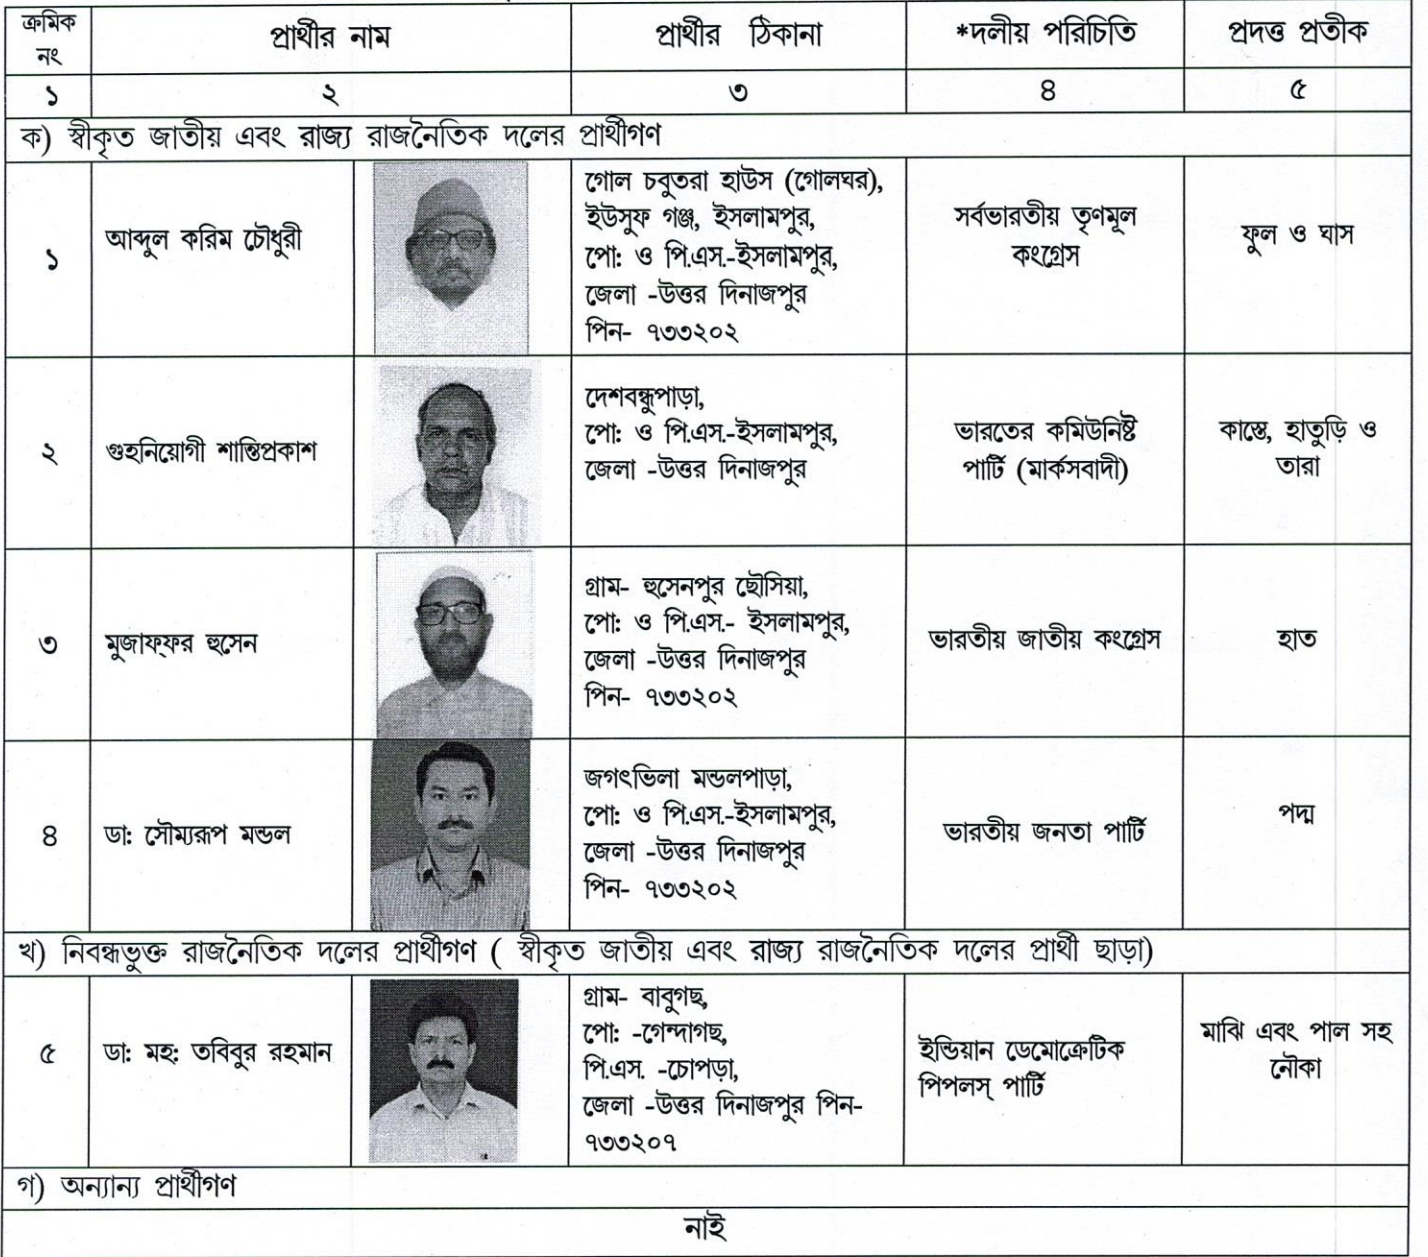 ক্রমিক নং প্রার্থীর নাম প্রার্থীর ঠিকানা *দলীয় পরিচিতি প্রদত্ত প্রতীক
১ ২ ৩ ৪ ৫
ক) স্বীকৃত জাতীয় এবং রাজ্য রাজনৈতিক দলের প্রার্থীগণ
১
আব্দুল করিম চৌধুরী
গোল চবুতরা হাউস (গোলঘর),
ইউসুফ গঞ্জ, ইসলামপুর,
পো: ও পি.এস.-ইসলামপুর,
জেলা -উত্তর দিনাজপুর
পিন- ৭৩৩২০২
সর্বভারতীয় তৃণমূল
কংগ্রেস
ফুল ও ঘাস
২
গুহনিয়োগী শান্তিপ্রকাশ
দেশবন্ধুপাড়া,
পো: ও পি.এস.-ইসলামপুর,
জেলা -উত্তর দিনাজপুর
ভারতের কমিউনিষ্ট
পার্টি (মার্কসবাদী)
কাস্তে, হাতুড়ি ও
তারা
৩
মুজাফ্ফর হুসেন
গ্রাম- হুসেনপুর ছৌসিয়া,
পো: ও পি.এস.- ইসলামপুর,
জেলা -উত্তর দিনাজপুর
পিন- ৭৩৩২০২
ভারতীয় জাতীয় কংগ্রেস
হাত
৪
ডা: সৌম্যরূপ মন্ডল
জগৎভিলা মন্ডলপাড়া,
পো: ও পি.এস.-ইসলামপুর,
জেলা -উত্তর দিনাজপুর
পিন- ৭৩৩২০২
ভারতীয় জনতা পার্টি
পদ্ম
খ) নিবন্ধভুক্ত রাজনৈতিক দলের প্রার্থীগণ ( স্বীকৃত জাতীয় এবং রাজ্য রাজনৈতিক দলের প্রার্থী ছাড়া)
৫
ডা: মহ: তবিবুর রহমান
গ্রাম- বাবুগছ,
পো: -গেন্দাগছ,
পি.এস. -চোপড়া,
জেলা -উত্তর দিনাজপুর পিন-
৭৩৩২০৭
ইন্ডিয়ান ডেমোক্রেটিক
পিপলস্ পার্টি
মাঝি এবং পাল সহ
নৌকা
গ) অন্যান্য প্রার্থীগণ
নাই